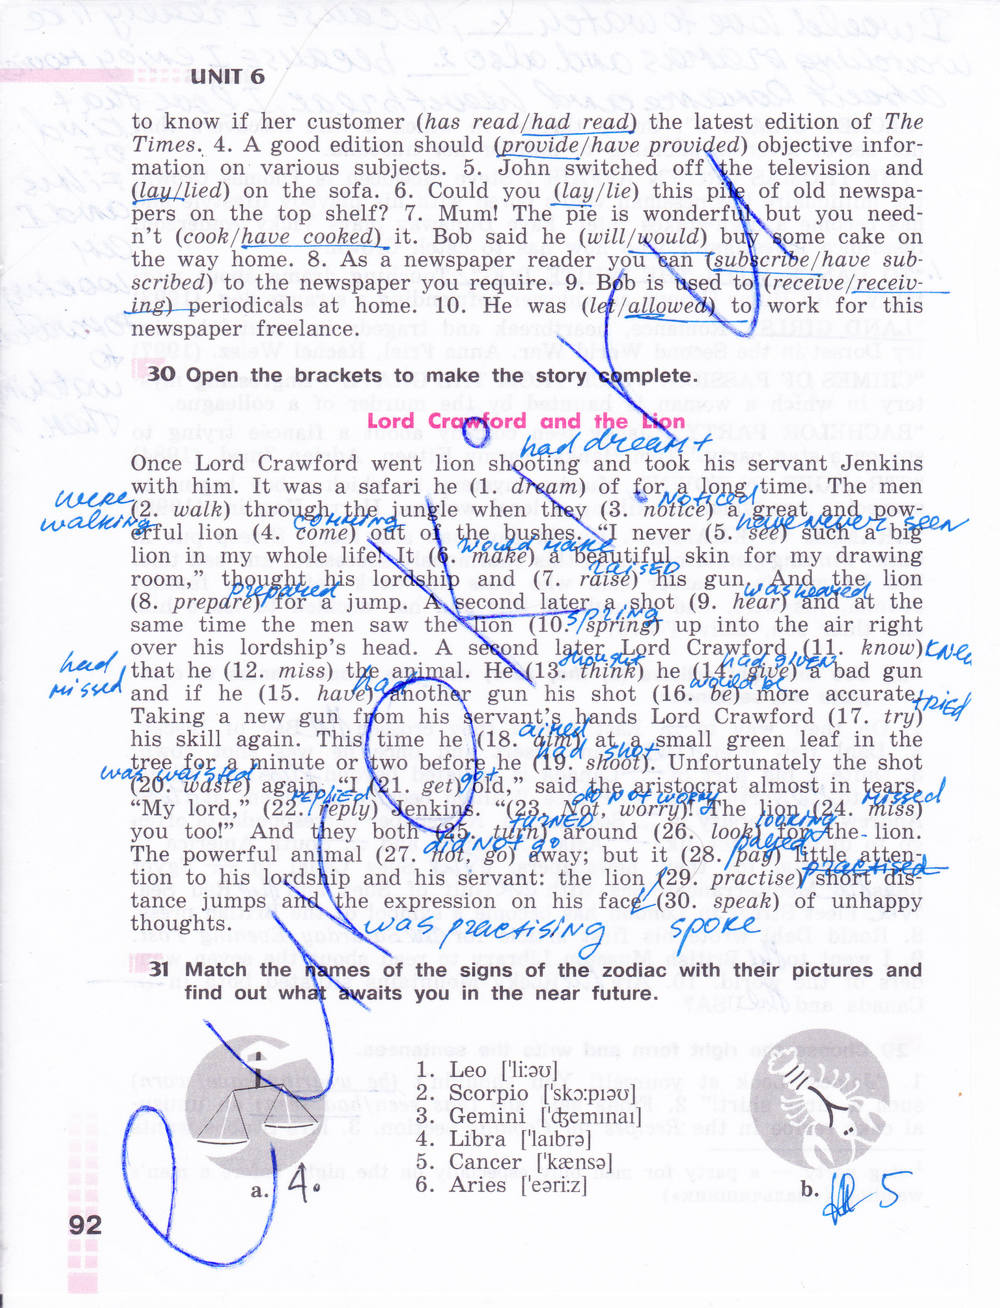 UNIT 6
to know if her customer (has read/had read) the latest edition of The
Times. 4. A good edition should (provide/have provided) objective infor-
mation on various subjects. 5. John switched off the television and
(lay/lied) on the sofa. 6. Could you (lay/lie) this pile of old newspa-
pers on the top shelf? 7. Mum! The pie is wonderful but you need-
n't (cook/have cooked) it. Bob said he (will/would) buy some cake on
the way home. 8. As a newspaper reader you can (subscribe/have sub-
scribed) to the newspaper you require. 9. Bob is used to (receive/receiv-
ing) periodicals at home. 10. He was (let/allowed) to work for this
newspaper freelance.
30 Open the brackets to make the story complete.
Lord Crawford and the Lion
had dreamt
Once Lord Crawford went lion shooting and took his servant Jenkins
with him. It was a safari he (1. dream) of for a long time. The men
were walking
noticed
(2. walk) through the jungle when they (3. notice) a great and pow-
comming
have never seen
erful lion (4. come) out of the bushes. "I never (5. see) such a big
would make
lion in my whole life! It (6. make) a beautiful skin for my drawing
raised
room," thought his lordship and (7. raise) his gun. And the lion
prepared
was heared
(8. prepare) for a jump. A second later a shot (9. hear) and at the
spring
same time the men saw the lion (10. spring) up into the air right
over his lordship's head. A second later Lord Crawford (11. know)
knew
had missed
thought
had given
that he (12. miss) the animal. He (13. think) he (14. give) a bad gun
had
would be
and if he (15. have) another gun his shot (16. be) more accurate.
tried
Taking a new gun from his servant's hands Lord Crawford (17. try)
aimed
his skill again. This time he (18. aim) at a small green leaf in the
had shot
tree for a minute or two before he (19. shoot). Unfortunately the shot
was waisted
got
(20. waste) again. "I (21. get) old," said the aristocrat almost in tears.
replied
do not worry
missed
"My lord," (22. reply) Jenkins. "(23. Not, worry)! The lion (24. miss)
turned
looking
you too!" And they both (25. turn) around (26. look) for the lion.
did not go
payed
The powerful animal (27. not, go) away; but it (28. pay) little atten-
practised
tion to his lordship and his servant: the lion (29. practise) short dis-
tance jumps and the expression on his face (30. speak) of unhappy
thoughts.
was practising spoke
31 Match the names of the signs of the zodiac with their pictures and
find out what awaits you in the near future.
1. Leo ['li:əʊ]
2. Scorpio ['skɔ:pɪəʊ]
3. Gemini ['ʤemɪnaɪ]
4. Libra ['laɪbrə]
5. Cancer ['kænsə]
6. Aries ['eəri:z]
a. 4.
b. 5
92